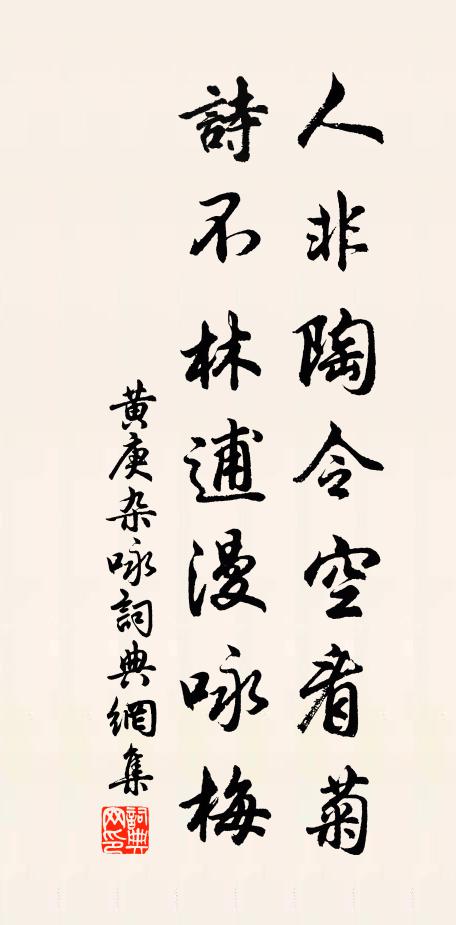 人非陶令空看菊
詩不林逋漫咏梅
黄庚杂咏詞典網集
詞典网印